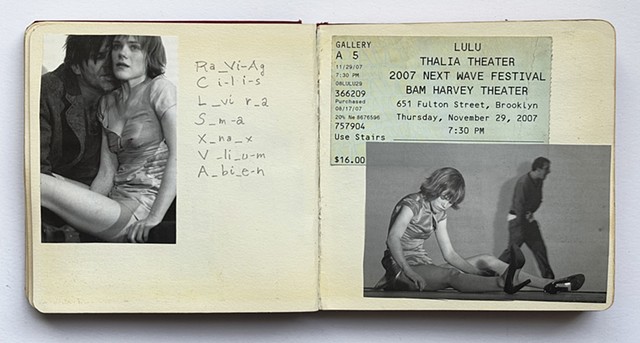 Ra_Vi-Ag
C i-l i-s
L_vi r_a
S_m-a
X_na_x
V_li_u-m
A_bi e-n
GALLERY
A 5
11/29/07
7:30 PM
366209
Purchased
08/17/07
757904
Use Stairs
$16.00
LULU
THALIA THEATER
2007 NEXT WAVE FESTIVAL
BAM HARVEY THEATER
651 Fulton Street, Brooklyn
Thursday, November 29, 2007
7:30 PM